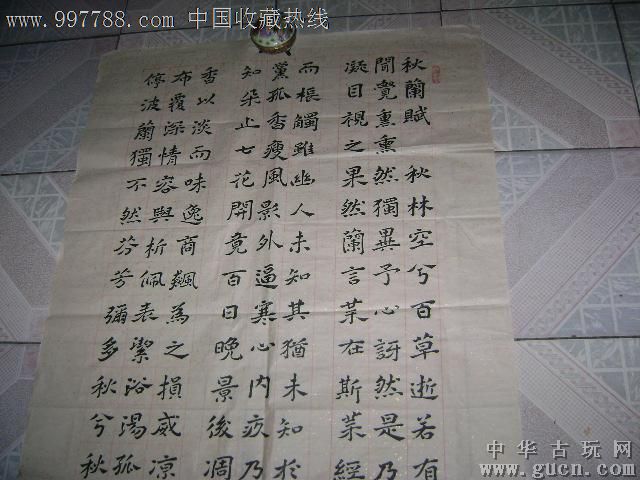 www.997788.com 中国收藏热线
秋蘭賦 秋林空兮百草逝若有
聞覺熏熏然獨異予心訝然是乃
凝目視之果然蘭言某在斯業經
而棖觸雖幽人未知其猶未知於
黨孤香瘦風影外逼寒心內疚乃
知朵止七花開竟百日晚景後凋
香以淡而味逸商飆為之損威凉
布覆深情容與析佩表潔浴湯孤
停波蘭獨不然芬芳彌多秋兮秋
中华古玩网
www.gucn.com